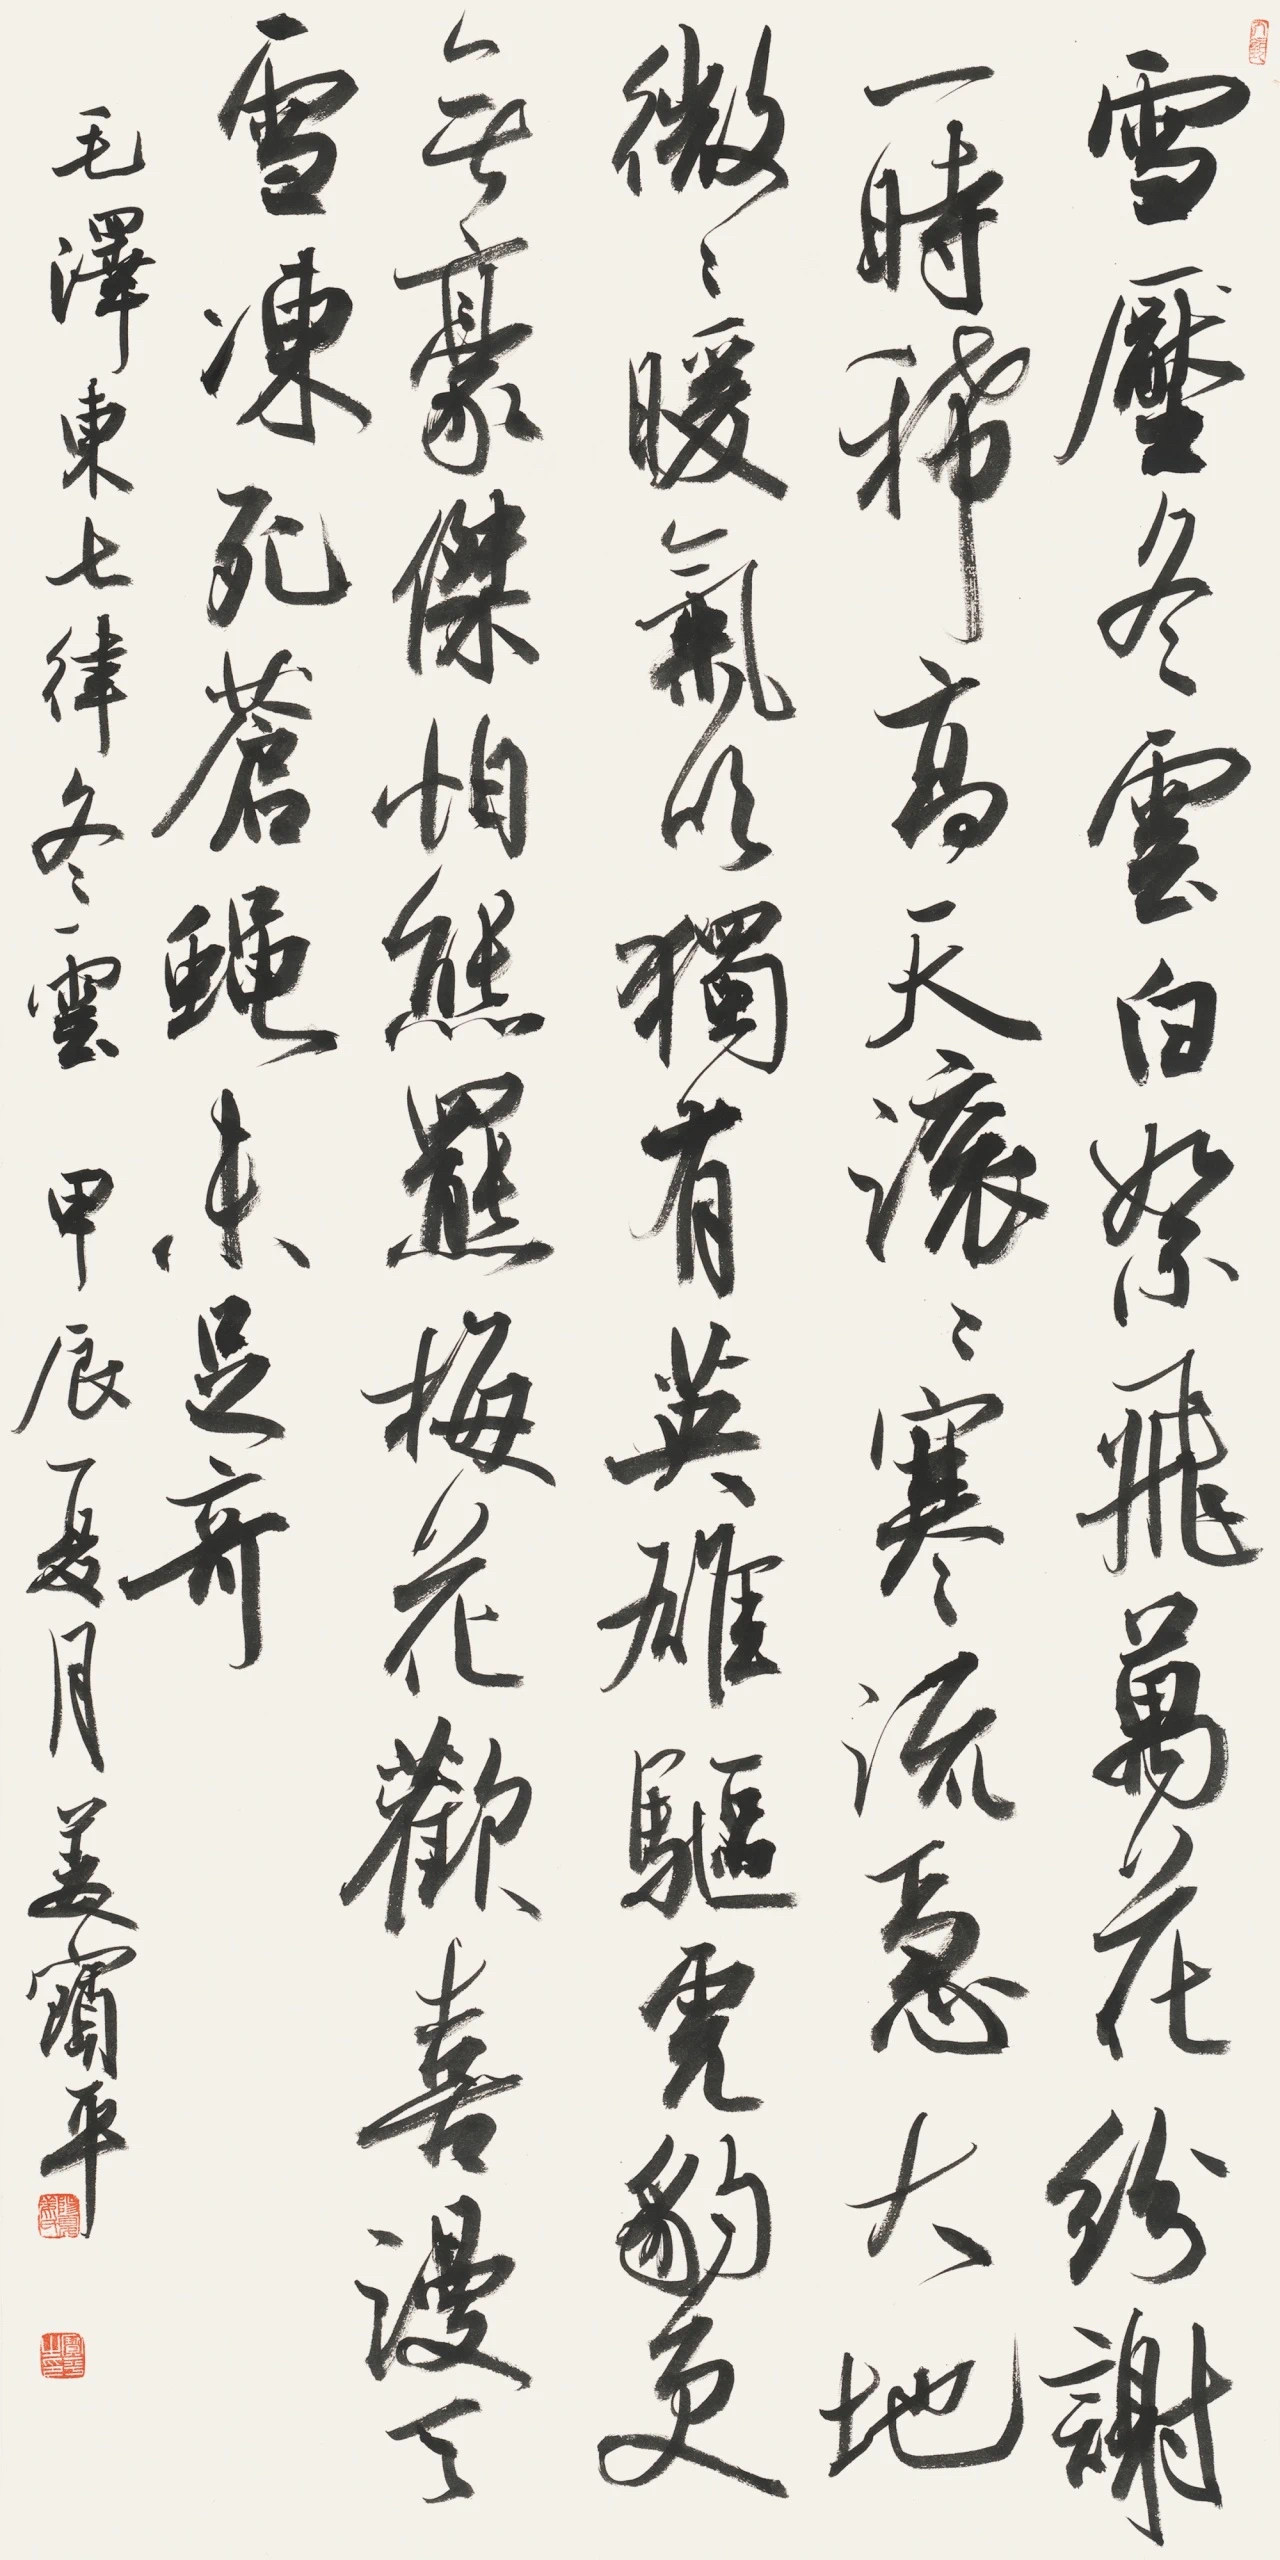 雪壓冬雲白絮飛萬花紛謝
一時稀高天滾〻寒流急大地
微〻暖氣吹獨有英雄驅虎豹更
無豪傑怕熊羆梅花歡喜漫天
雪凍死蒼蠅未足奇
毛澤東七律冬雲 甲辰夏月 姜寶平